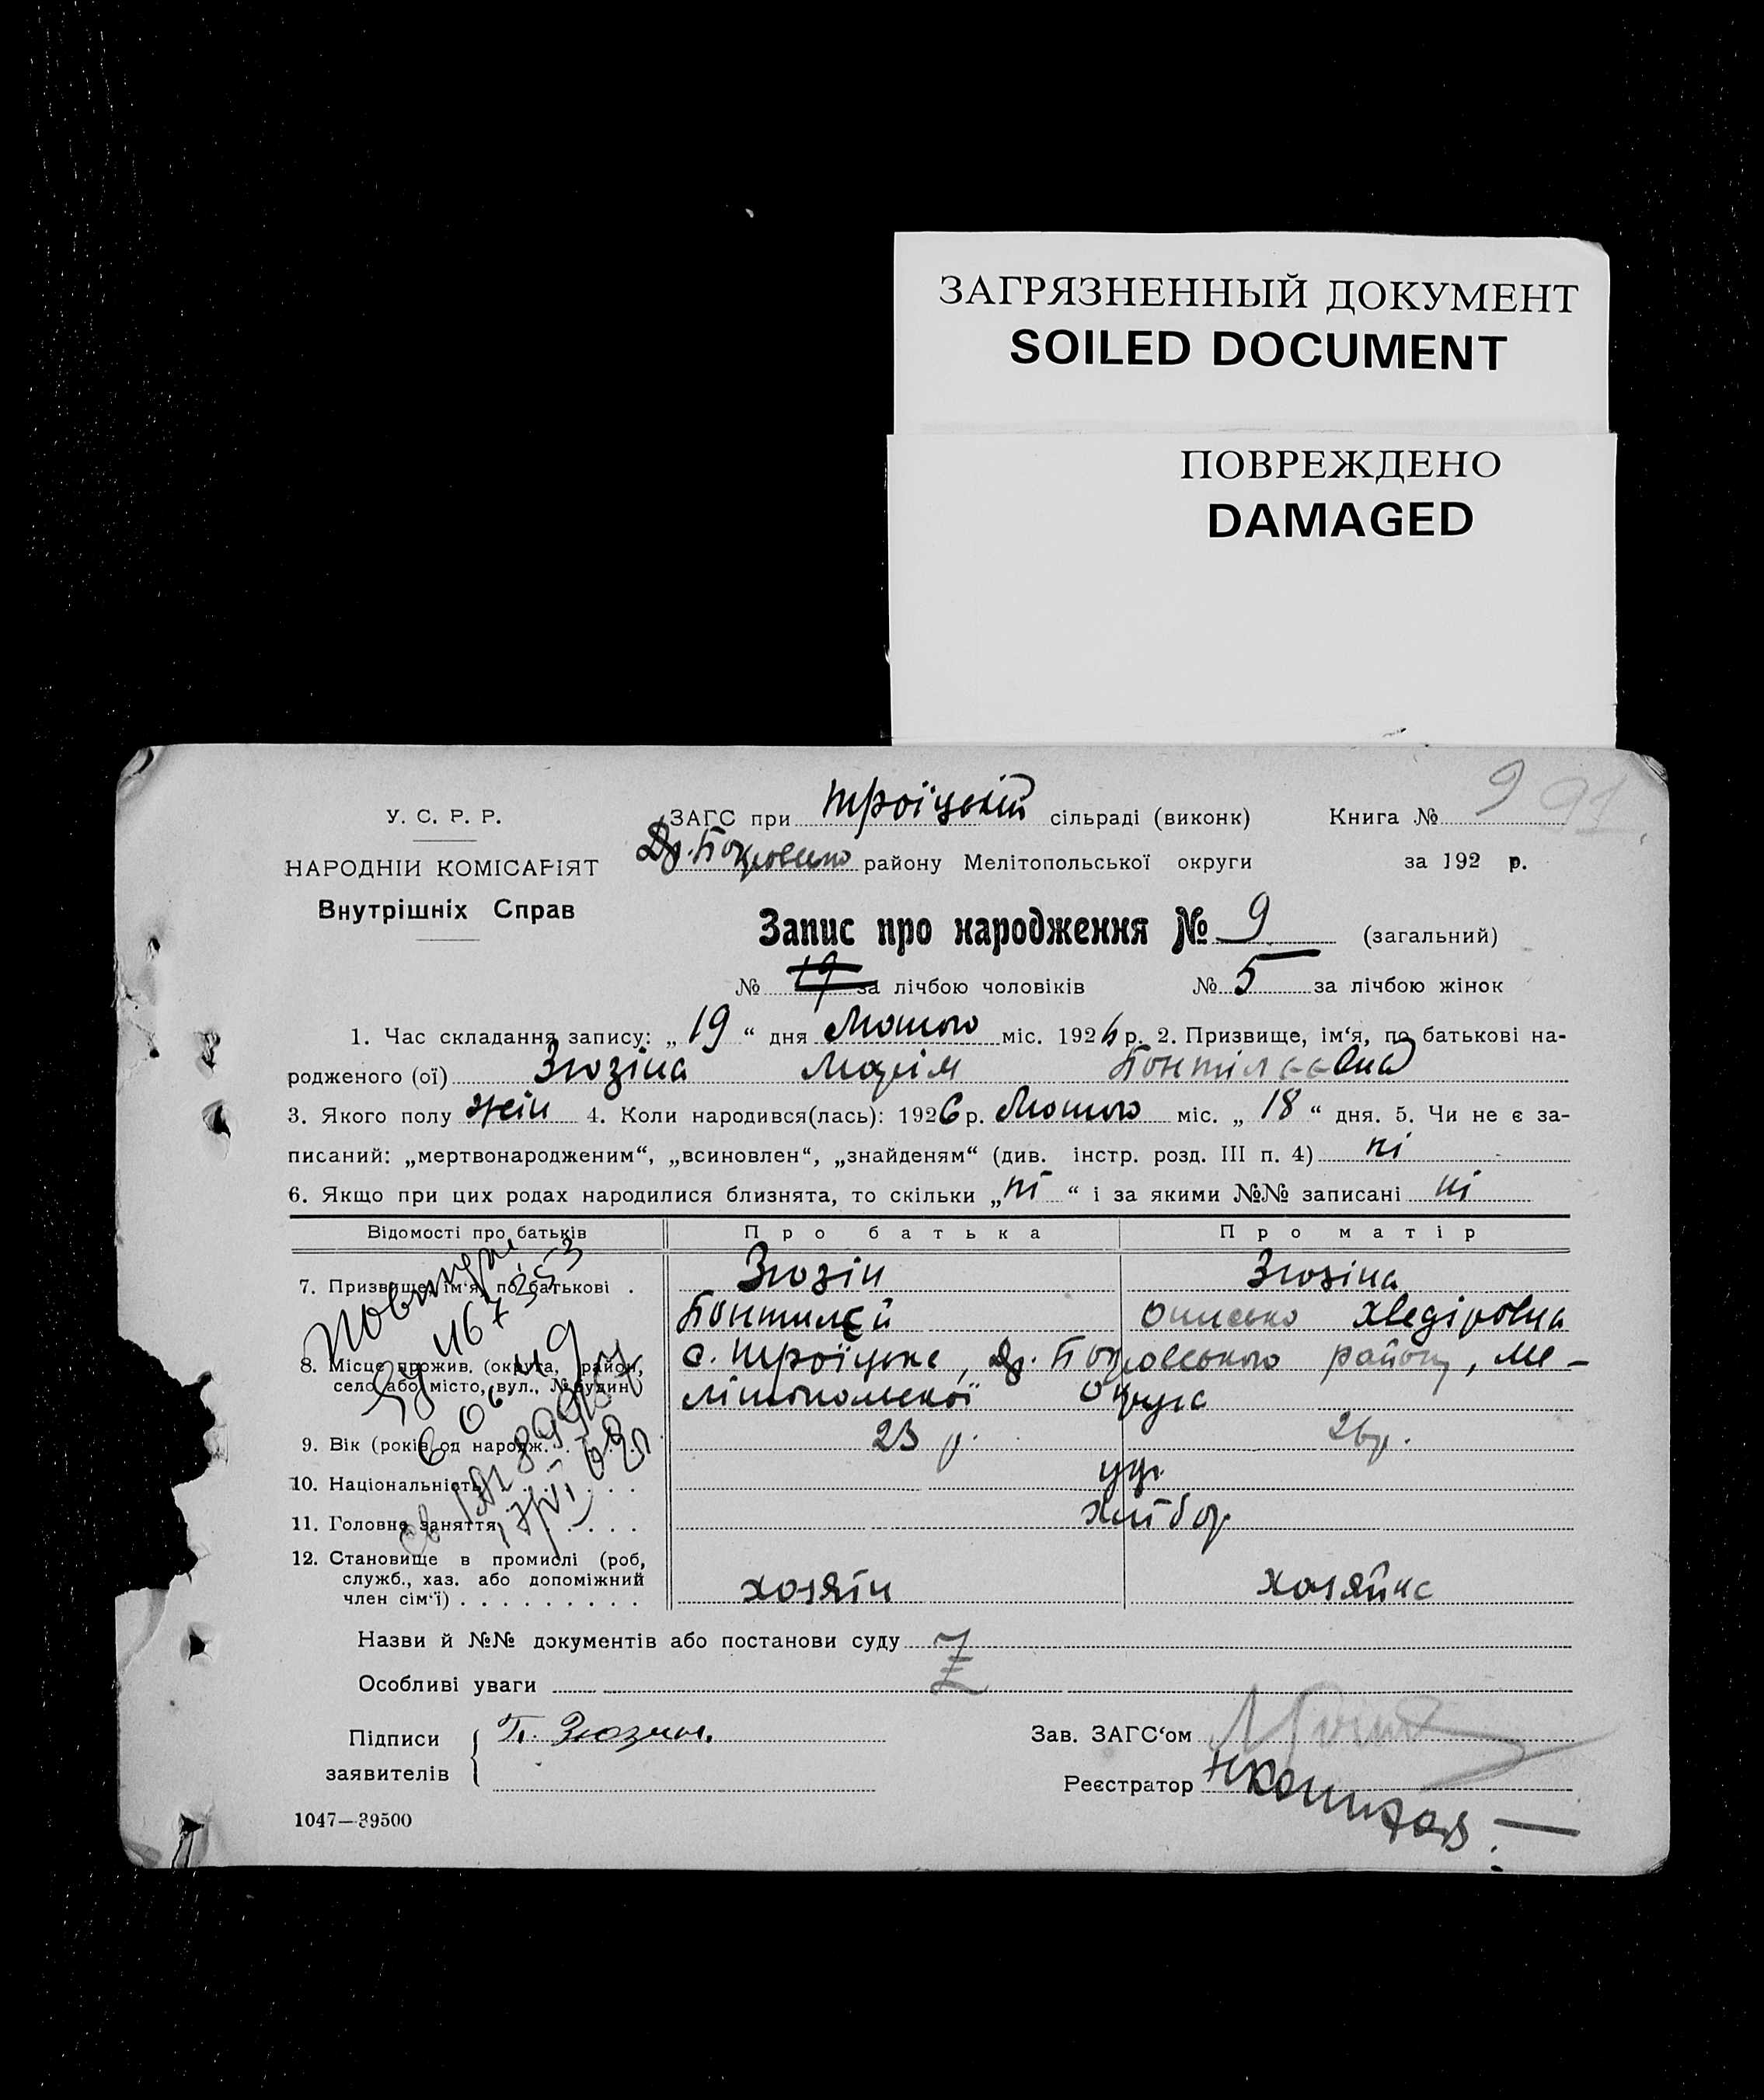 ЗАГРЯЗНЕННЫЙ ДОКУМЕНТ
SOILED DOCUMENT
ПОВРЕЖДЕНО
DAMAGED
У. С. Р. Р.
НАРОДНІЙ КОМІСАРІЯТ
Внутрішніх Справ
ЗАГС при Троїцькій сільраді (виконк)
Книга № 9 91
району Мелітопольської округи
за 192 р.
Запис про народження № 9 (загальний)
№ 19 за лічбою чоловіків № 5 за лічбою жінок
1. Час складання запису: „ 19 “ дня Лютого міс. 1926 р. 2. Призвище, ім‘я, по батькові на-
родженого (ої) Зюзіна Марія
3. Якого полу жін 4. Коли народився(лась): 1926 р. Лютого міс. „ 18 “ дня. 5. Чи не є за-
писаний: „мертвонародженим“, „всиновлен“, „знайденям“ (див. інстр. розд. III п. 4) ні
6. Якщо при цих родах народилися близнята, то скільки „ ні “ і за якими №№ записані ні
Відомості про батьків Про батька Про матір
7. Призвище, ім‘я, по батькові . Зюзін Зюзіна
Понтилєй Хведіровна
8. Місце прожив. (округа, район, село або місто, вул., № будин.) с. Троїцьке, району, Ме-
літопольскої округе
9. Вік (років од народж. 23 р. 26 р.
10. Національність укр.
11. Головне заняття хлібор.
12. Становище в промислі (роб, служб., хаз. або допоміжний член сім‘ї) хозяїн хозяйка
Назви й №№ документів або постанови суду
Z
Особливі уваги
Підписи заявителів П. Зюзин.
Зав. ЗАГС‘ом
Реєстратор
1047—39500